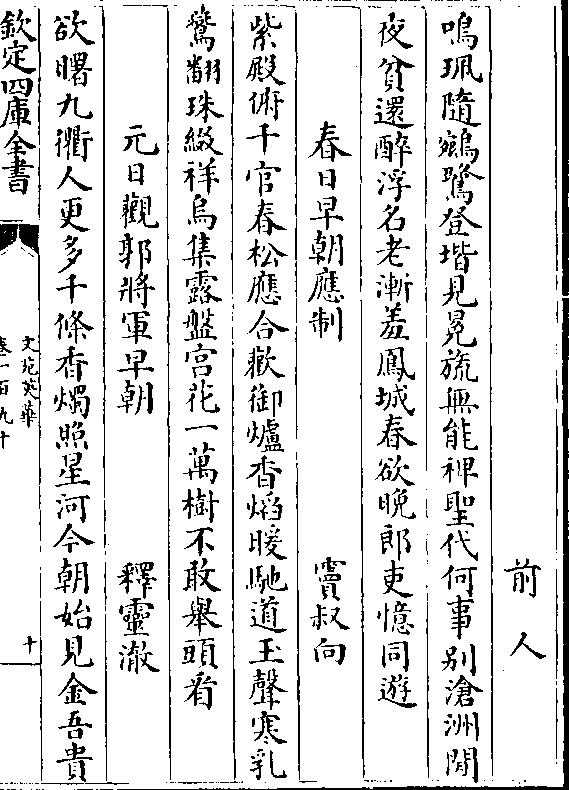 前人
鳴珮隨鵷鷺登堦見冕旒無能裨聖代何事别滄洲閒
夜貧還醉浮名老漸羞鳳城春欲晚郎吏憶同遊
春日早朝應制 竇叔向
紫殿俯千官春松應合歡御爐香焰暖馳道玉聲寒乳
鷰翻珠綴祥烏集露盤宫花一萬樹不敢舉頭看
元日觀郭將軍早朝 釋靈澈
欲曙九衢人更多千條香燭照星河今朝始見金吾貴
欽定四庫全書
文苑英華
卷一百九十
十